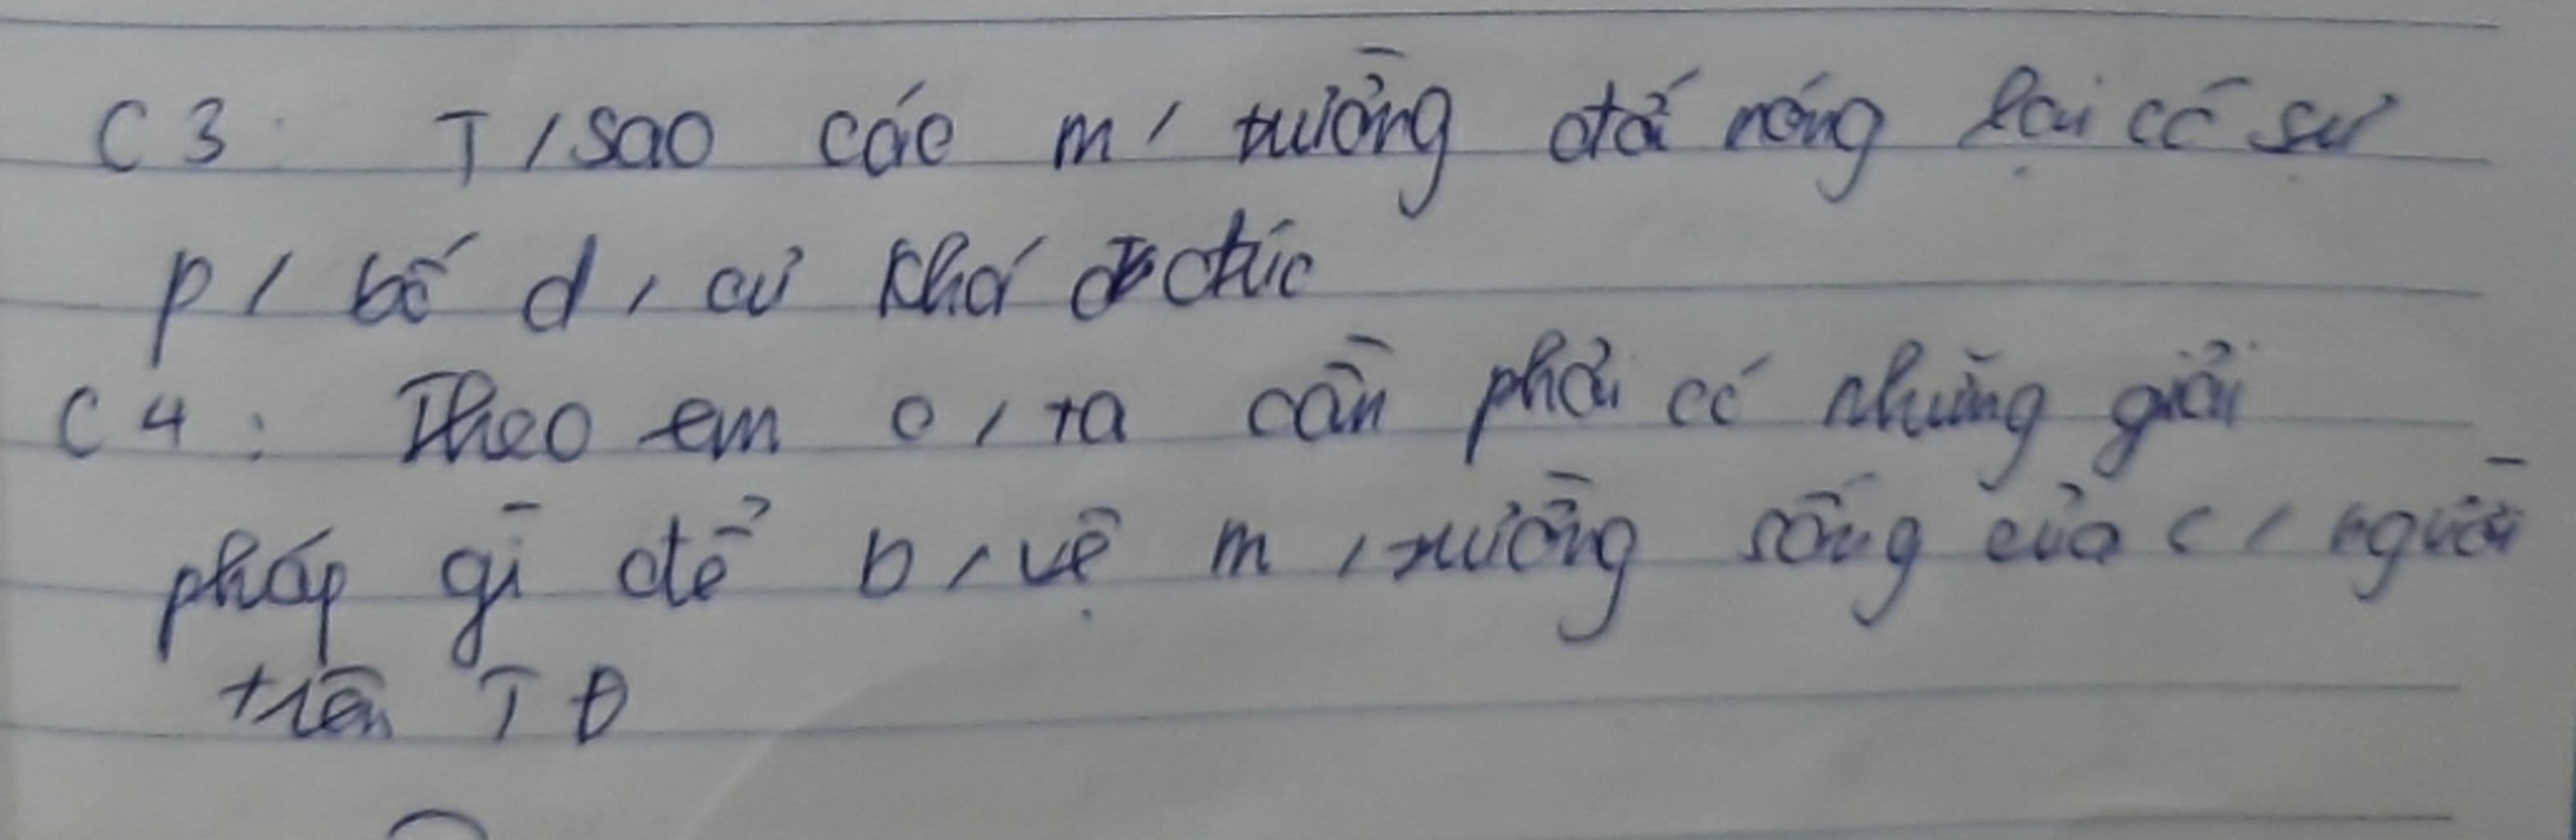 C3: T/sao các m/ trường đới nóng lại có sự
p/ bố d, cư khá đ chúc
C4: Theo em c/ta cần phải có những giải
pháp gì để b/vệ m/trường sống của c/ người
trên TĐ